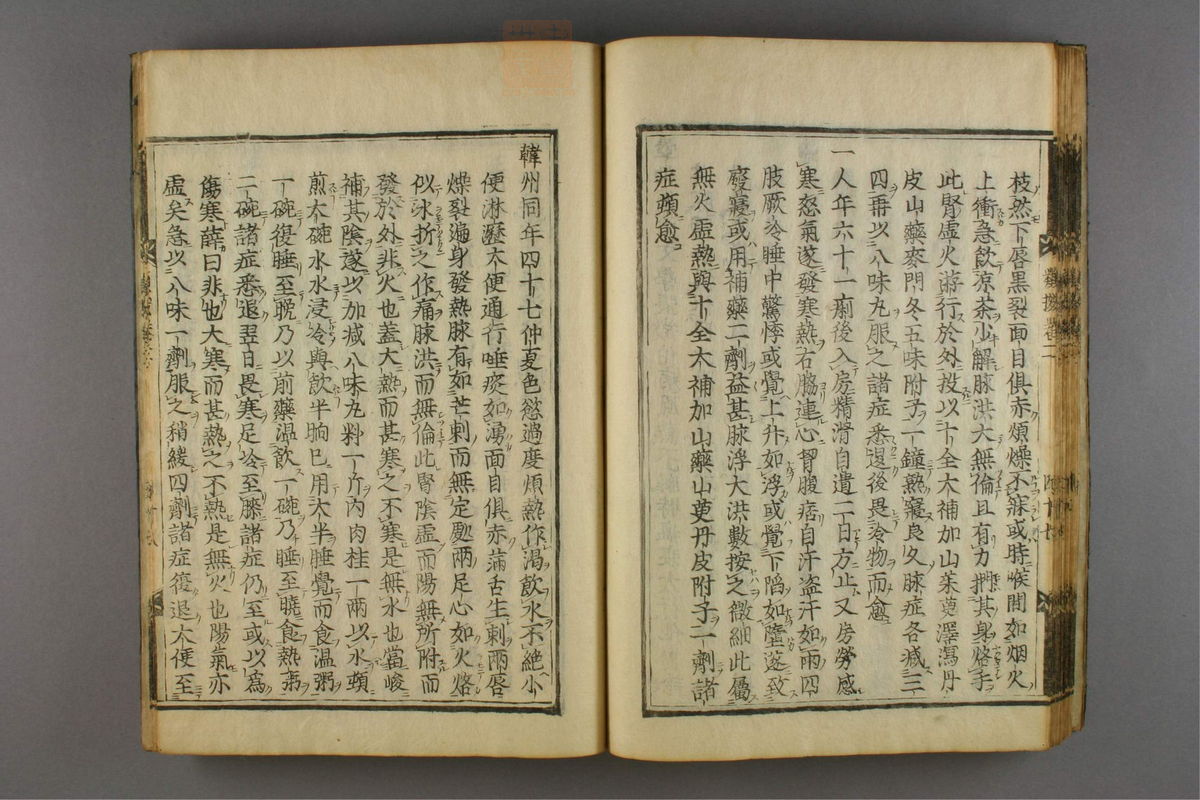 枝然下唇黒裂面目俱赤煩燥不寐或時喉間如烟火
上衝急飲凉茶少解脉洪大無倫且有力捫其身烙手
此腎虛火游行於外投以十全大補加山茱萸澤瀉丹
皮山藥麥門冬五味附子一鐘熟寢良久脉症各减三
四再以八味丸服之諸症悉退後畏冷物而愈
一人年六十一痢後入房精滑自遺二日方止又房勞感
寒怒氣遂發寒熱右脇連心胷腹痞自汗盗汗如雨四
肢厥冷睡中驚悸或覺上升如浮或覺下陷如墮遂致
廢寢或用補藥二劑益甚脉浮大洪數按之微細此屬
無火虛熱與十全大補加山藥山萸丹皮附子一劑諸
症頓愈
韓州同年四十七仲夏色慾過度煩熱作渴飲水不絕小
便淋瀝大便通行唾痰如湧面目俱赤滿舌生刺兩唇
燥裂遍身發熱脉有如芒刺而無定處兩足心如火烙
似氷折之作痛脉洪而無倫此腎陰虛而陽無所附而
發於外非火也蓋大熱而甚寒之不寒是無水也當峻
補其陰遂以加减八味丸料一斤內肉桂一兩以水頓
煎六碗水水浸冷與飲半晌已用大半睡覺而食温粥
一碗復睡至晚乃以前藥温飲一碗乃睡至曉食熱粥
二碗諸症悉退翌日畏寒足冷至膝諸症仍至或以為
傷寒薛曰非也大寒而甚熱之不熱是無火也陽氣亦
虛矣急以八味一劑服之稍緩四劑諸症復退大便至